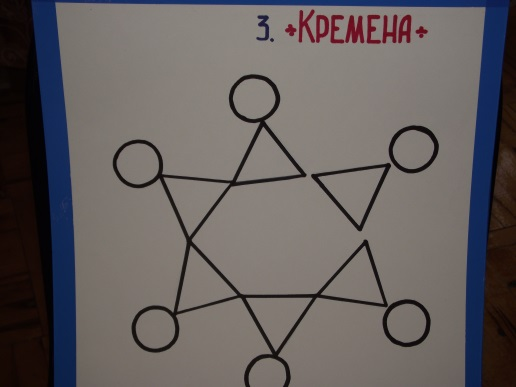 3. •КРЕМЕНА•